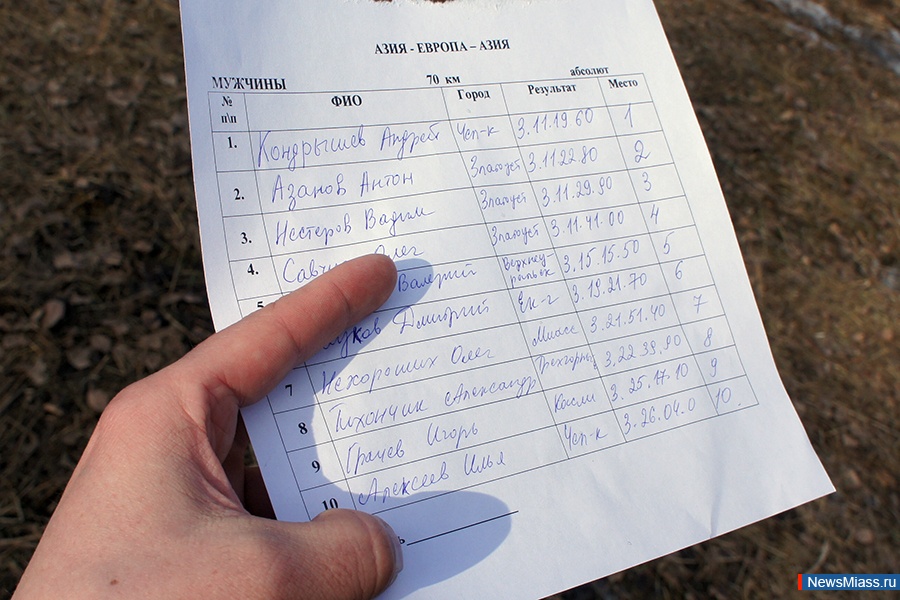 АЗИЯ - ЕВРОПА – АЗИЯ
МУЖЧИНЫ 70 км абсолют
№ п\п ФИО Город Результат Место
1. Кондрышев Андрей Чеп-к 3.11.19 60 1
2. Азанов Антон Златоуст 3.11 22.80 2
3. Нестеров Вадим Златоуст 3.11.29.90 3
4. Олег Златоуст 3.11.41.00 4
Валерий Верхнеуральск 3.15.15.50 5
Дмитрий Ек-г 3.19.21.70 6
7 Нехороших Олег Миасс 3.21.51.40 7
8 Тихончик Александр 3.22.39.90 8
9 Грачев Игорь Касли 3.25.17.10 9
10 Алексеев Илья Чеп-к 3.26.04.0 10.
NewsMiass.ru